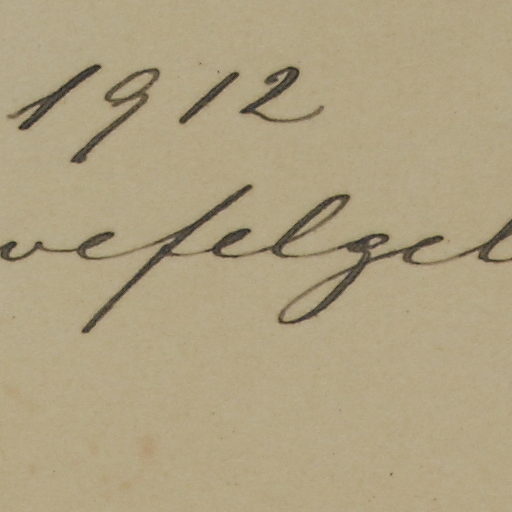 1912
vefelgel